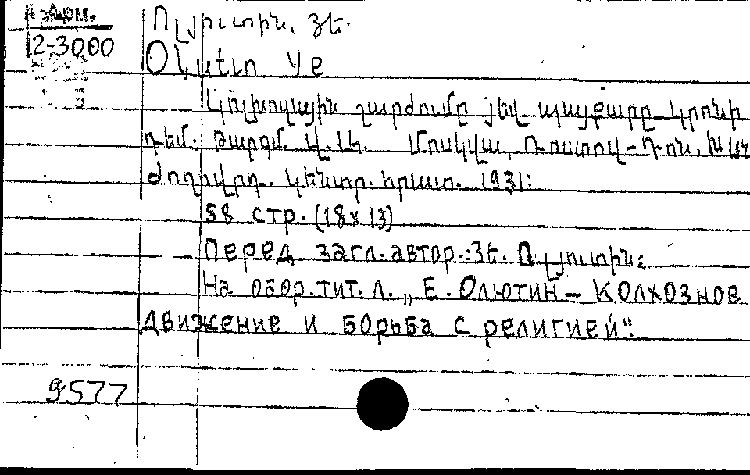 Яз Арм.
2-3000
Ոլյուտին, Յե.
Olutin Ye
Կոլխոզային շարժումը յեվ պայքարը կրոնի
դեմ. Թարգմ. Մոսկվա, Ռոստով-Դոն, ԽՍՀՄ
ժողովրդ. կենտր. հրատ. 1931:
58 стр. (18x13)
Перед загл. автор.: Յե. Ոլյուտին:
На обор. тит. л. „Е. Олютин - Колхозное
движение и борьба с религией".
9577